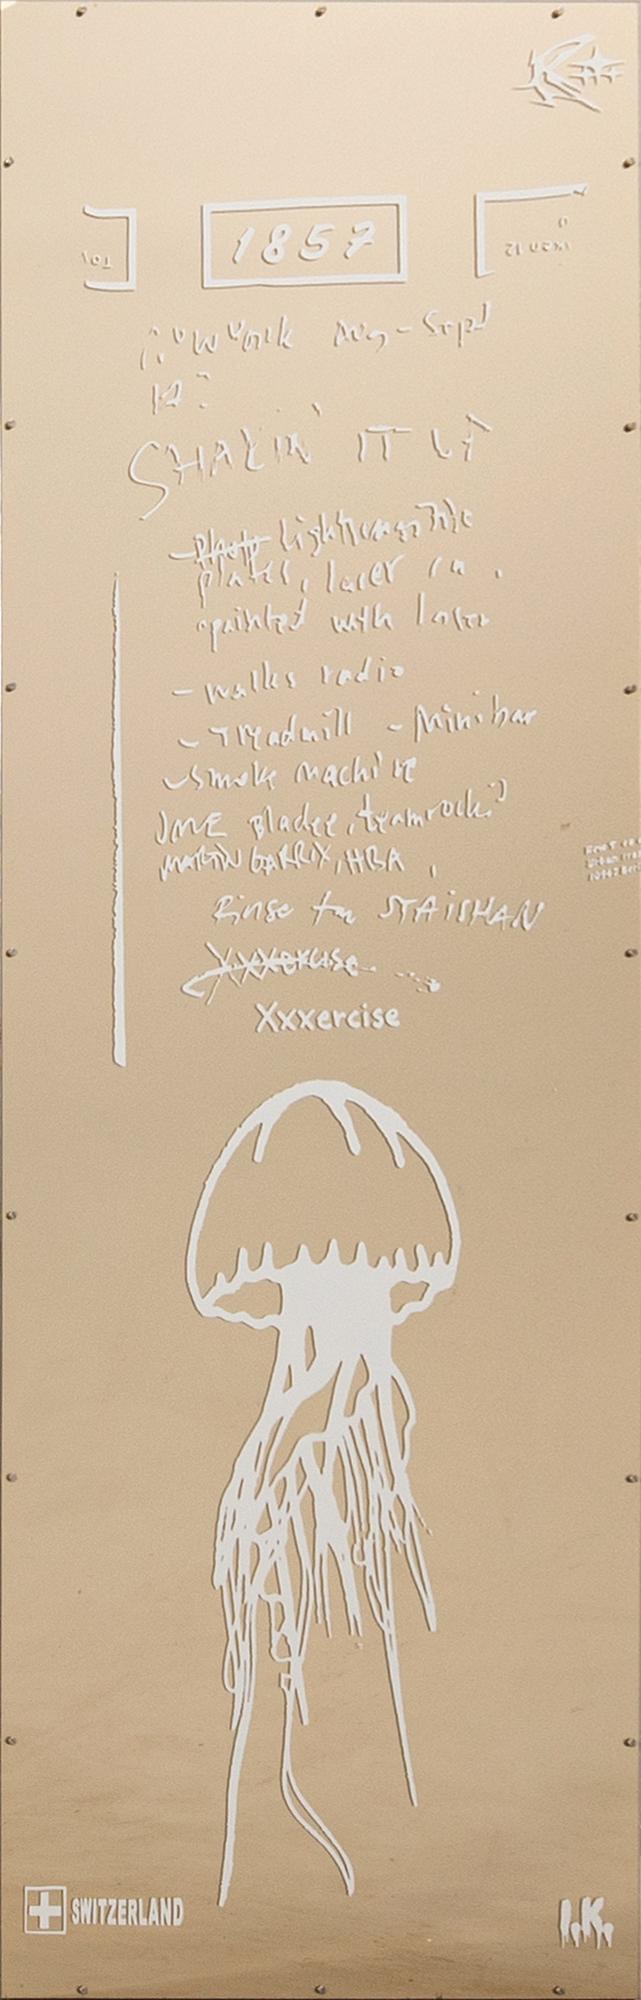 1857
Work Aug - Sept
12:
SHAKIN' IT UP
- Photo Lightroom
plates, laser in
painted with laser
- walks radio
- Treadmill - Minibar
- Smoke Machine
JME Bladee, teamrock?
MARTIN GARRIX, HBA,
Rinse fm STAISHAN
Xxxercise
Xxxercise
SWITZERLAND
I.K.